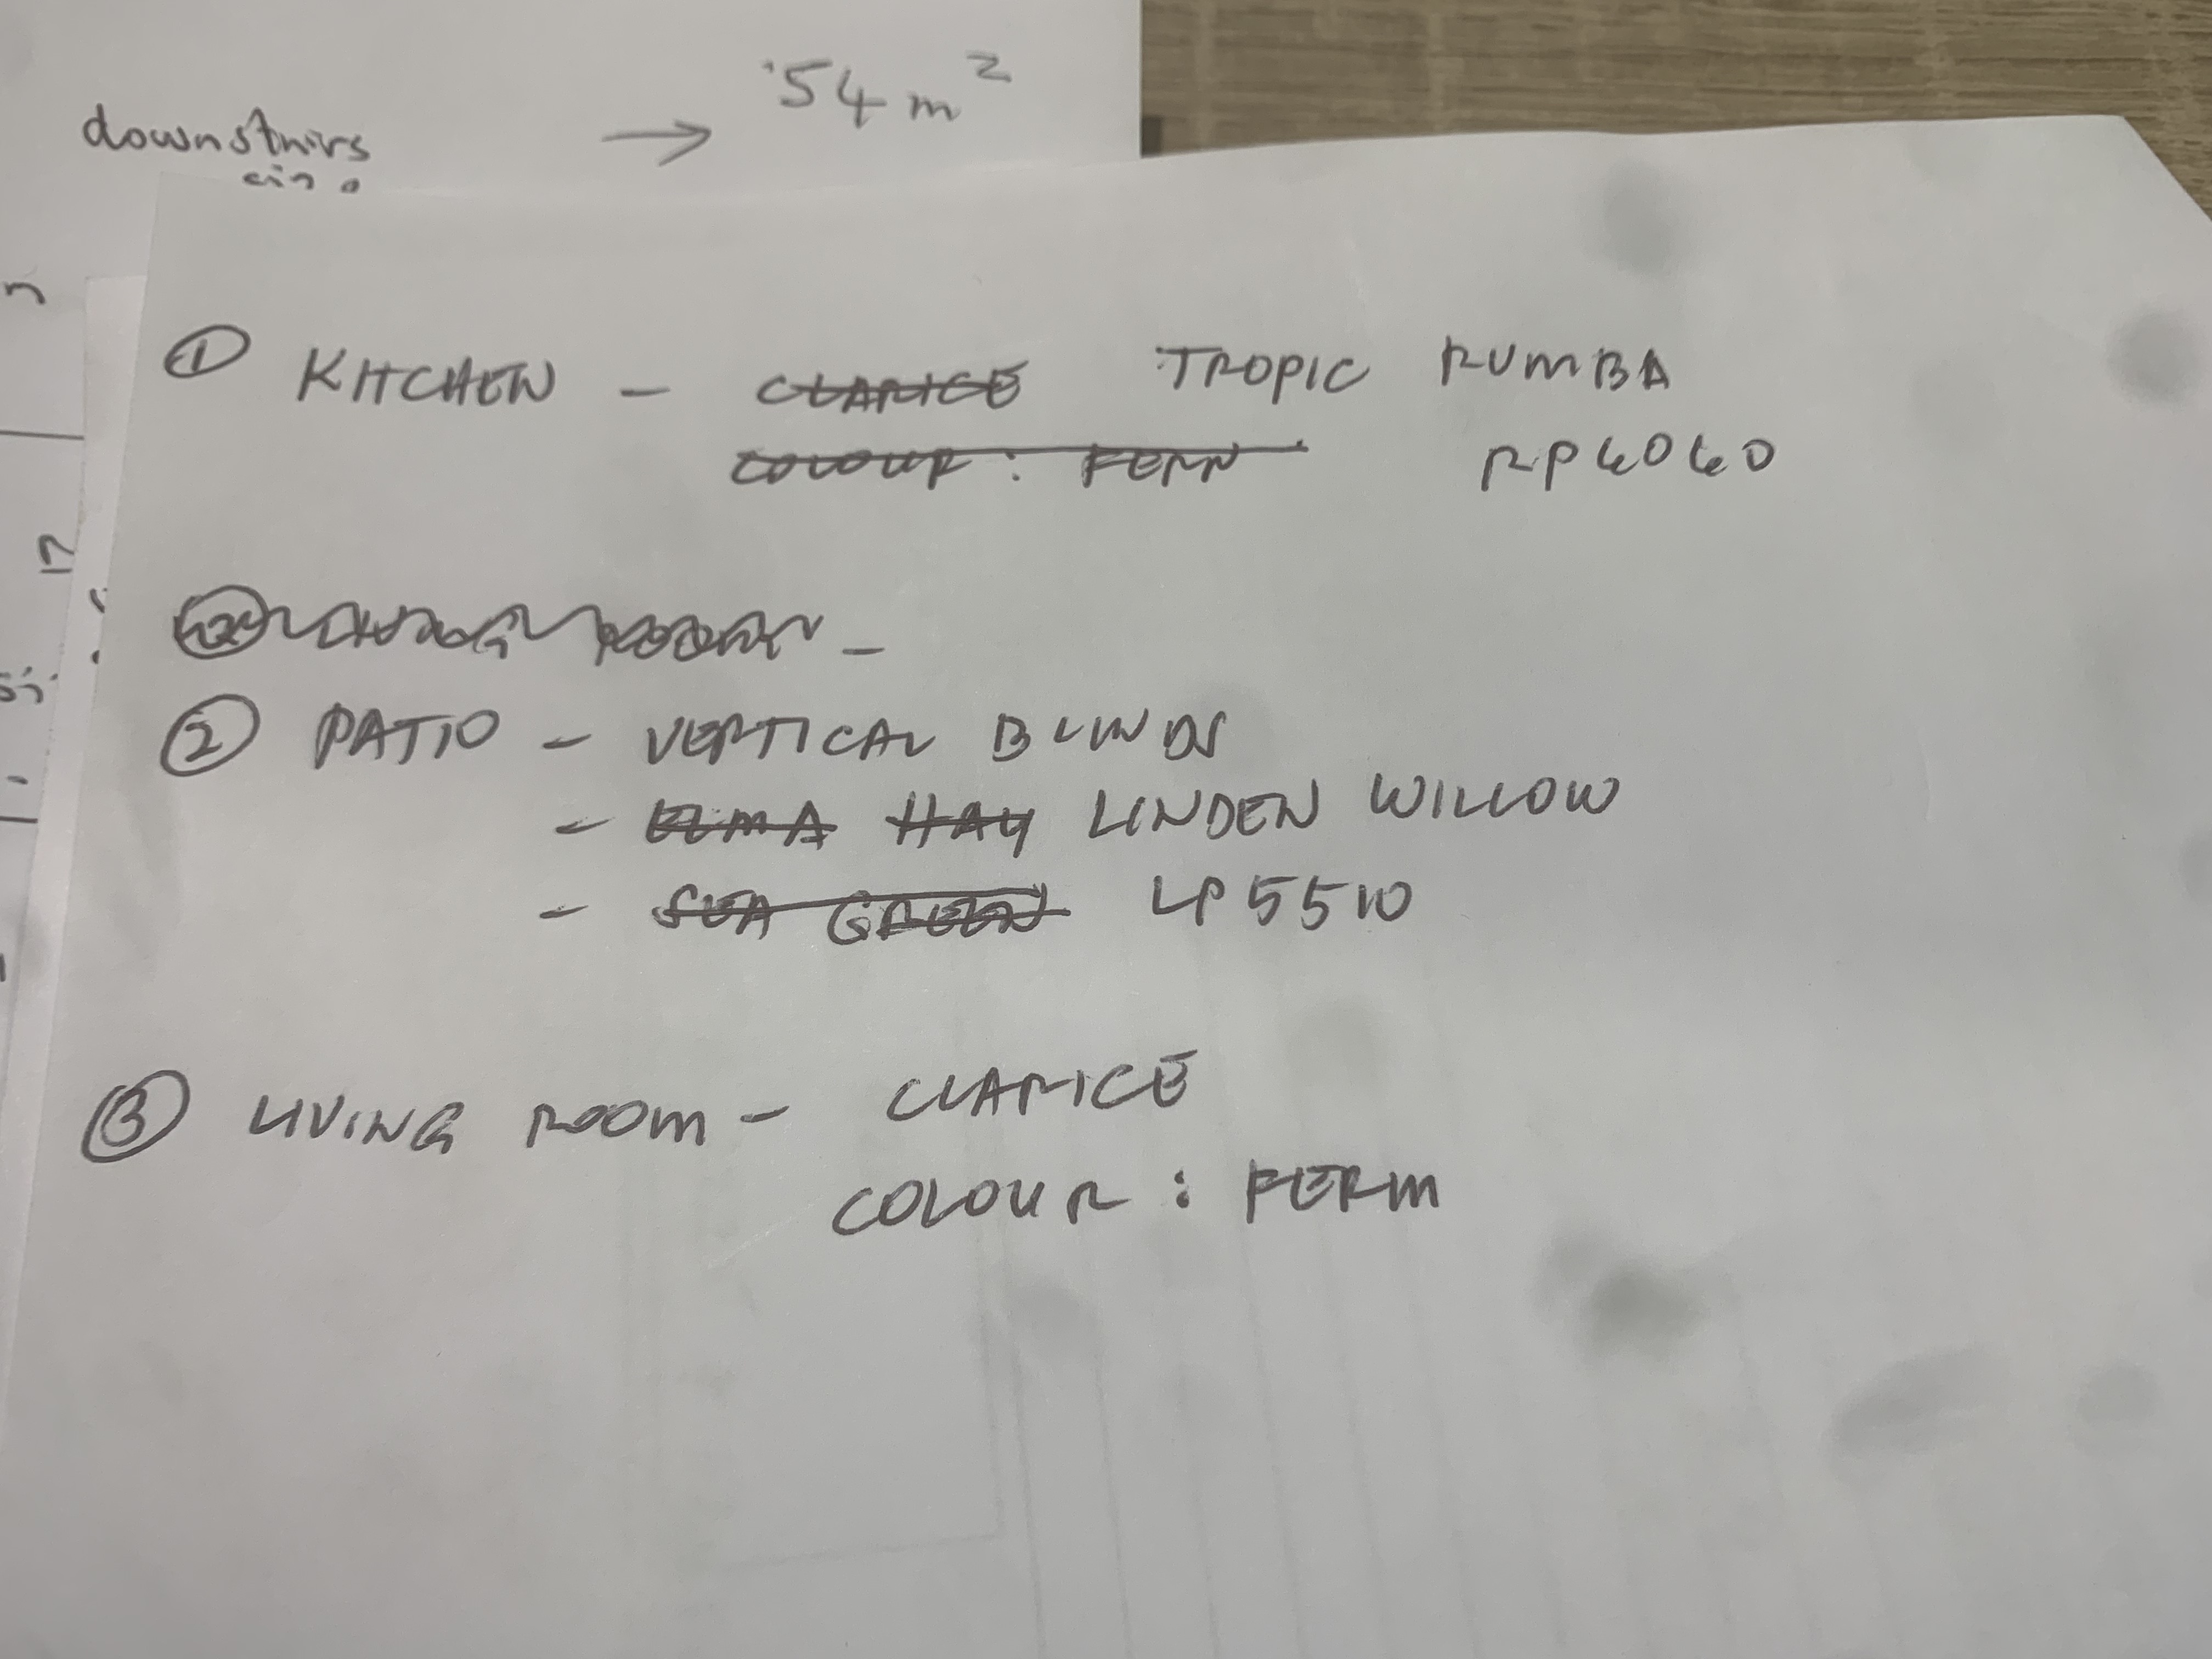 54 m²
downstairs →
① KITCHEN - CLARICE TROPIC RUMBA
COLOUR : FERN RP6060
② LIVING ROOM -
② PATIO - VERTICAL BLINDS
- ELMA HAY LINDEN WILLOW
- SEA GREEN LP5510
③ LIVING ROOM - CLARICE
COLOUR : FERM